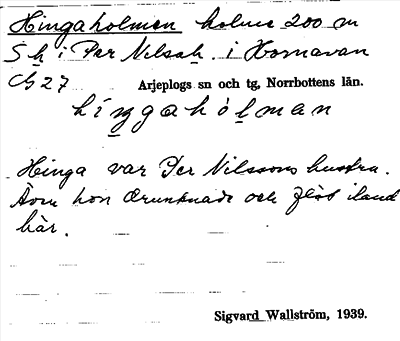 Hingaholmen holme 200 m
S h i Per Nilsah. i Hornavan
C27 Arjeplogs sn och tg, Norrbottens län.
hiŋgahòlman
Hinga var Per Nilssons hustru.
Även hon drunknade och flöt iland
här.
Sigvard Wallström, 1939.